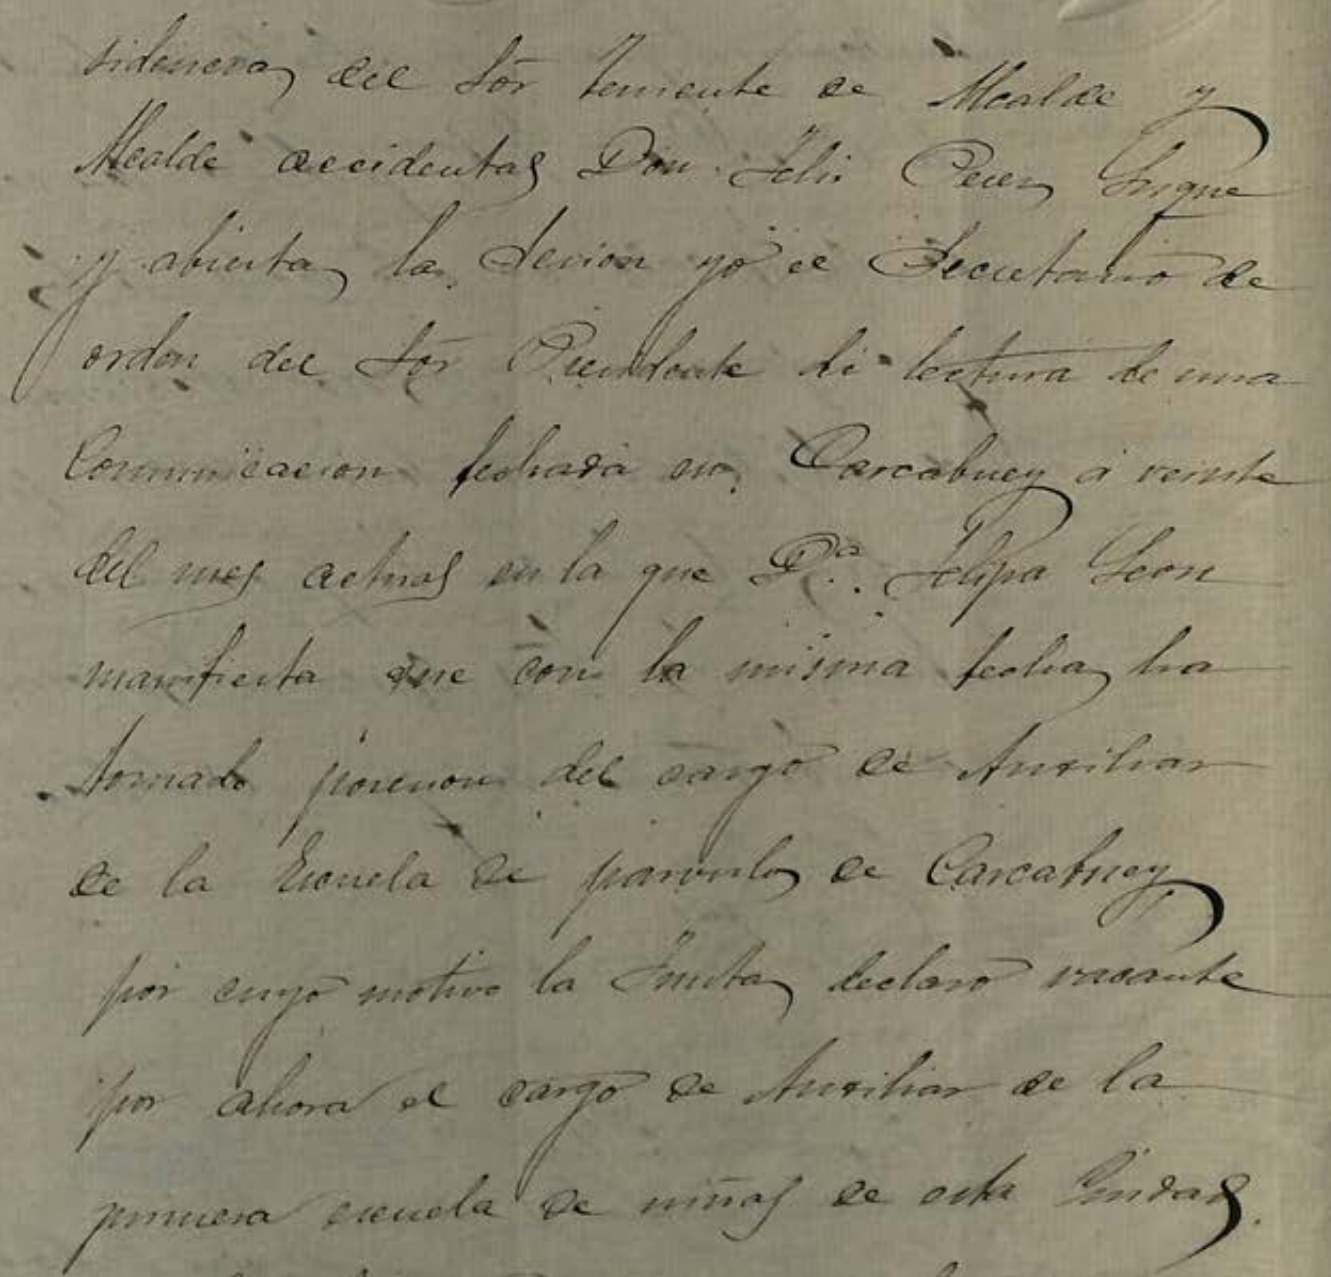 sidencia del Sor Teniente de Alcalde y
Alcalde accidental Don Felis Perez Luque
y abierta la Sesion yo el Secretario de
orden del Sor Presidente di lectura de una
Comunicacion fechada en Carcabuey á veinte
del mes actual en la que D.ª Felipa Leon
manifiesta que con la misma fecha ha
tomado posesion del cargo de Auxiliar
de la Escuela de parvulos de Carcabuey
por cuyo motivo la Junta declaró vacante
por ahora el cargo de Auxiliar de la
primera escuela de niñas de esta Ciudad.